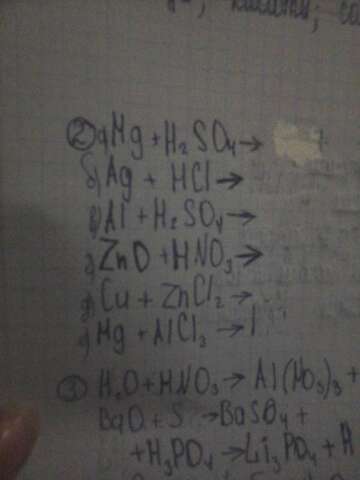 ② а) Mg + H₂SO₄ →
б) Ag + HCl →
в) Al + H₂SO₄ →
г) ZnO + HNO₃ →
д) Cu + ZnCl₂ →
е) Mg + AlCl₃ →
③ H₂O + HNO₃ → Al(NO₃)₃ +
BaO + S → BaSO₄ +
+ H₃PO₄ → Li₃PO₄ + H